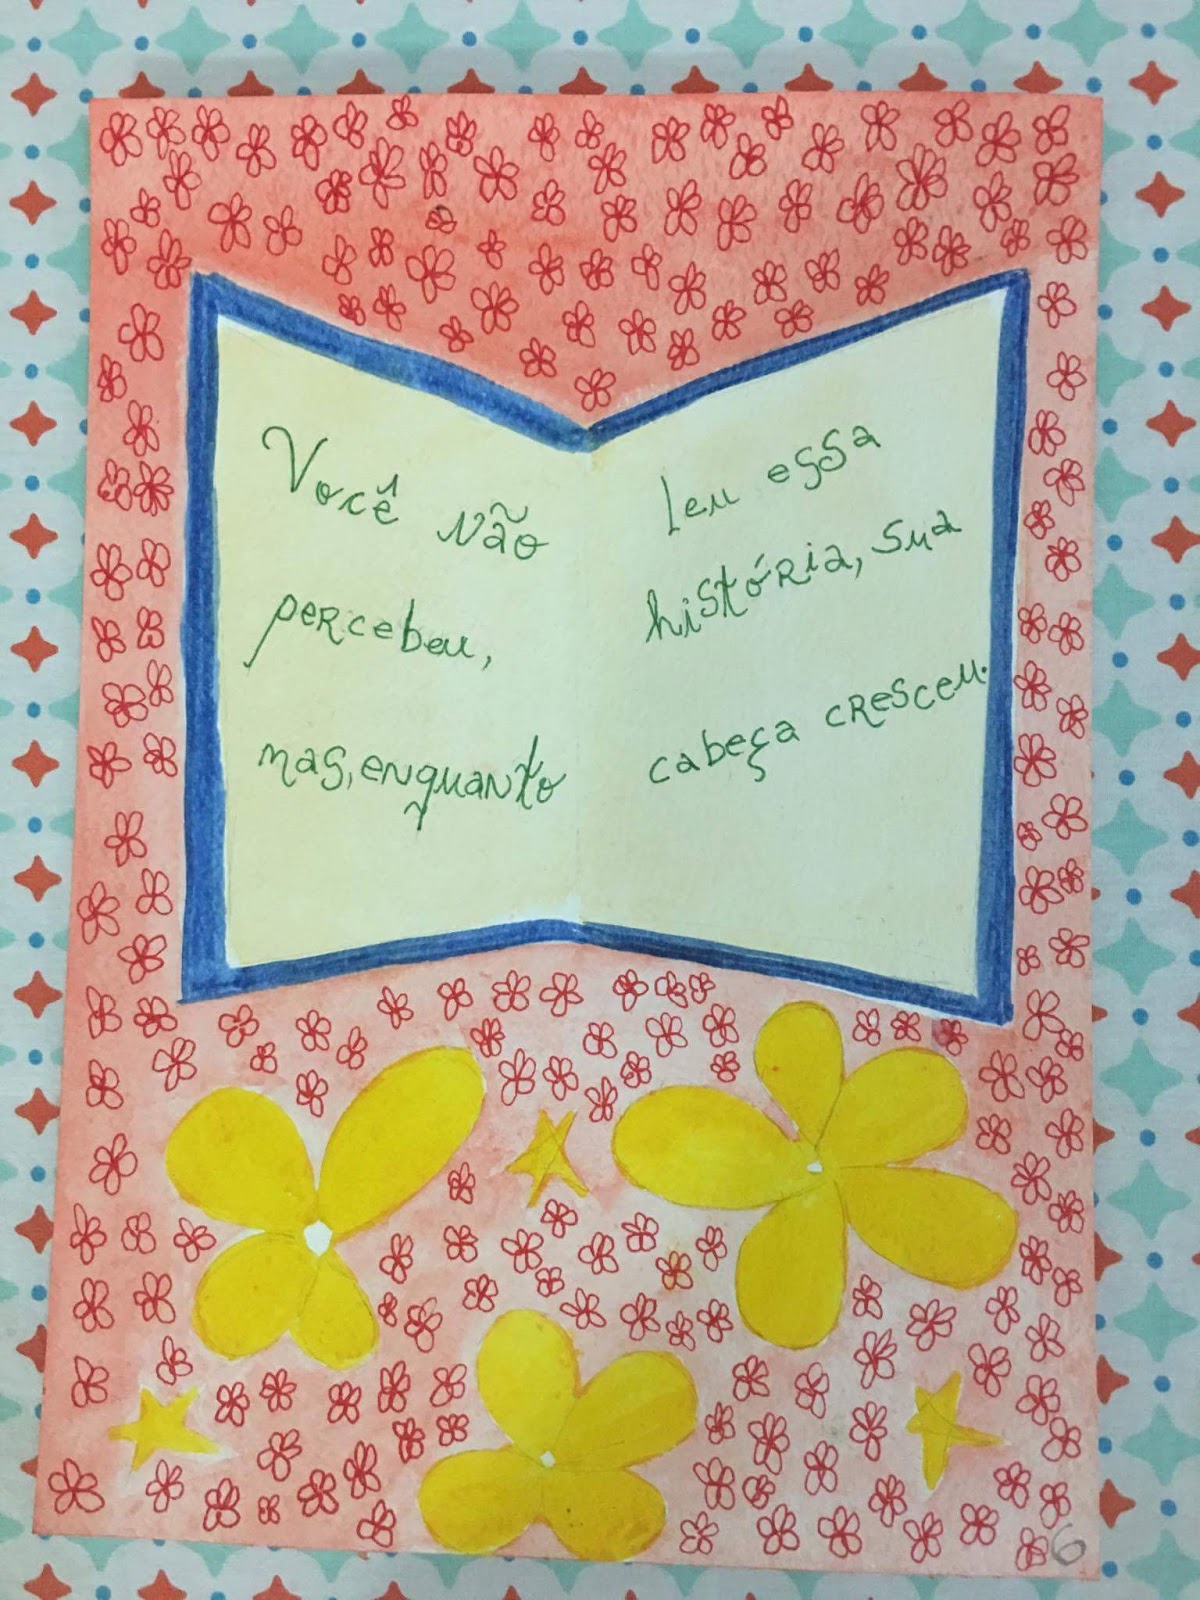 Você não
percebeu,
mas, enquanto
leu essa
história, sua
cabeça cresceu.
6